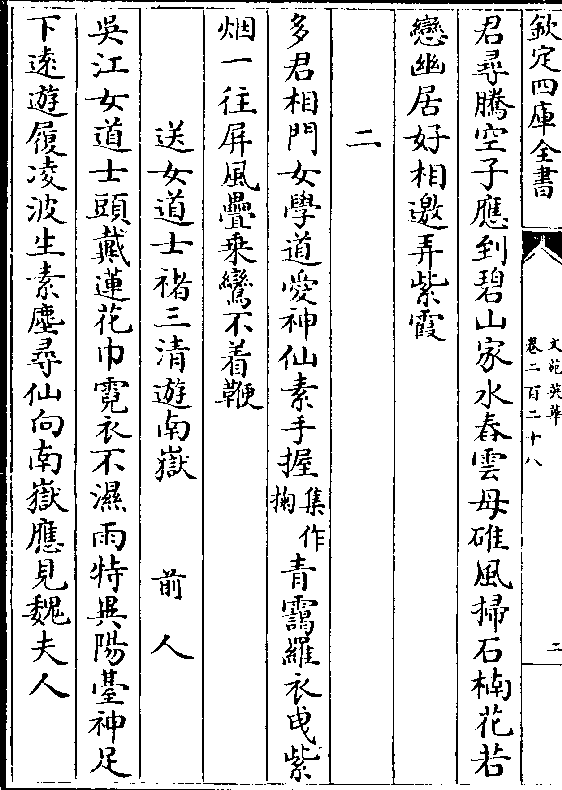 欽定四庫全書
文苑英華
卷二百二十八
二
君尋騰空子應到碧山家水舂雲母碓風掃石楠花若
戀幽居好相邀弄紫霞
二
多君相門女學道愛神仙素手握集作掬青靄羅衣曳紫
烟一往屏風疊乗鸞不着鞭
送女道士禇三清遊南嶽 前人
吳江女道士頭戴蓮花巾霓衣不濕雨特異陽臺神足
下逺遊履凌波生素塵尋仙向南嶽應見魏夫人